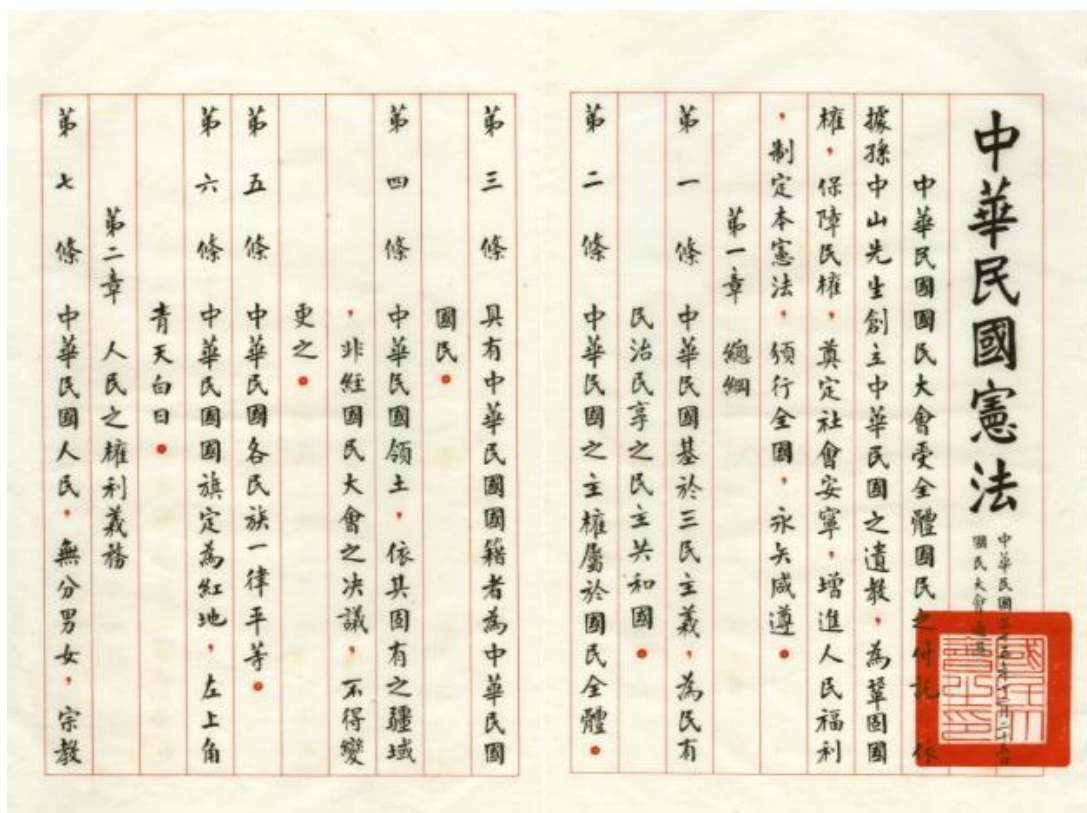 中華民國憲法
中華民國三十五年十二月二十五日
國民大會通過
中華民國國民大會受全體國民之付託，依
據孫中山先生創立中華民國之遺教，為鞏固國
權，保障民權，奠定社會安寧，增進人民福利
，制定本憲法，頒行全國，永矢咸遵。
第一章　總綱
第一條　中華民國基於三民主義，為民有
民治民享之民主共和國。
第二條　中華民國之主權屬於國民全體。
第三條　具有中華民國國籍者為中華民國
國民。
第四條　中華民國領土，依其固有之疆域
，非經國民大會之決議，不得變
更之。
第五條　中華民國各民族一律平等。
第六條　中華民國國旗定為紅地，左上角
青天白日。
第二章　人民之權利義務
第七條　中華民國人民，無分男女，宗教